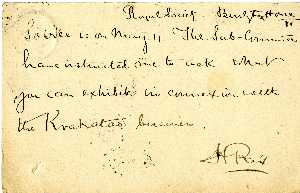 Royal Society Burlington House
Soirée is on May 11 The Sub-Committee
have instructed me to ask what
you can exhibit in connexion with
the Krakatao business.